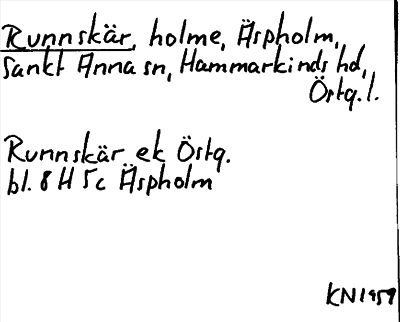 Runnskär, holme, Äspholm,
Sankt Anna sn, Hammarkinds hd,
Östg.l.
Runnskär ek Östg.
bl. 8 H 5c Äspholm
KN1959